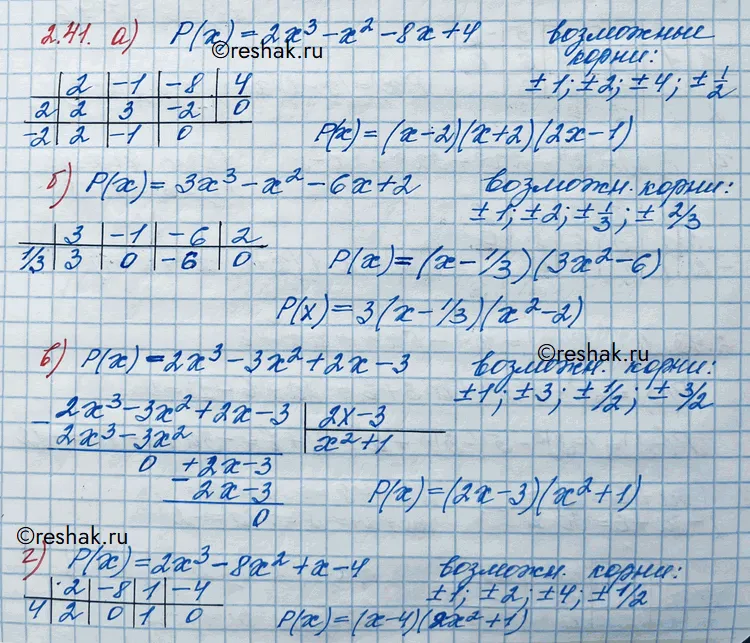 2.41. а) P(x) = 2x³ - x² - 8x + 4 возможные корни:
©reshak.ru
± 1; ± 2; ± 4; ± 1/2
2 | -1 | -8 | 4
2 | 2 | 3 | -2 | 0
-2 | 2 | -1 | 0
P(x) = (x - 2)(x + 2)(2x - 1)
б) P(x) = 3x³ - x² - 6x + 2 возможн. корни:
± 1; ± 2; ± 1/3; ± 2/3
3 | -1 | -6 | 2
1/3 | 3 | 0 | -6 | 0
P(x) = (x - 1/3)(3x² - 6)
P(x) = 3(x - 1/3)(x² - 2)
©reshak.ru
в) P(x) = 2x³ - 3x² + 2x - 3 возможн. корни:
± 1; ± 3; ± 1/2; ± 3/2
- 2x³ - 3x² + 2x - 3 | 2x - 3
2x³ - 3x² | x² + 1
0 + 2x - 3
- 2x - 3
0
P(x) = (2x - 3)(x² + 1)
©reshak.ru
г) P(x) = 2x³ - 8x² + x - 4 возможн. корни:
± 1; ± 2; ± 4; ± 1/2
2 | -8 | 1 | -4
4 | 2 | 0 | 1 | 0
P(x) = (x - 4)(2x² + 1)